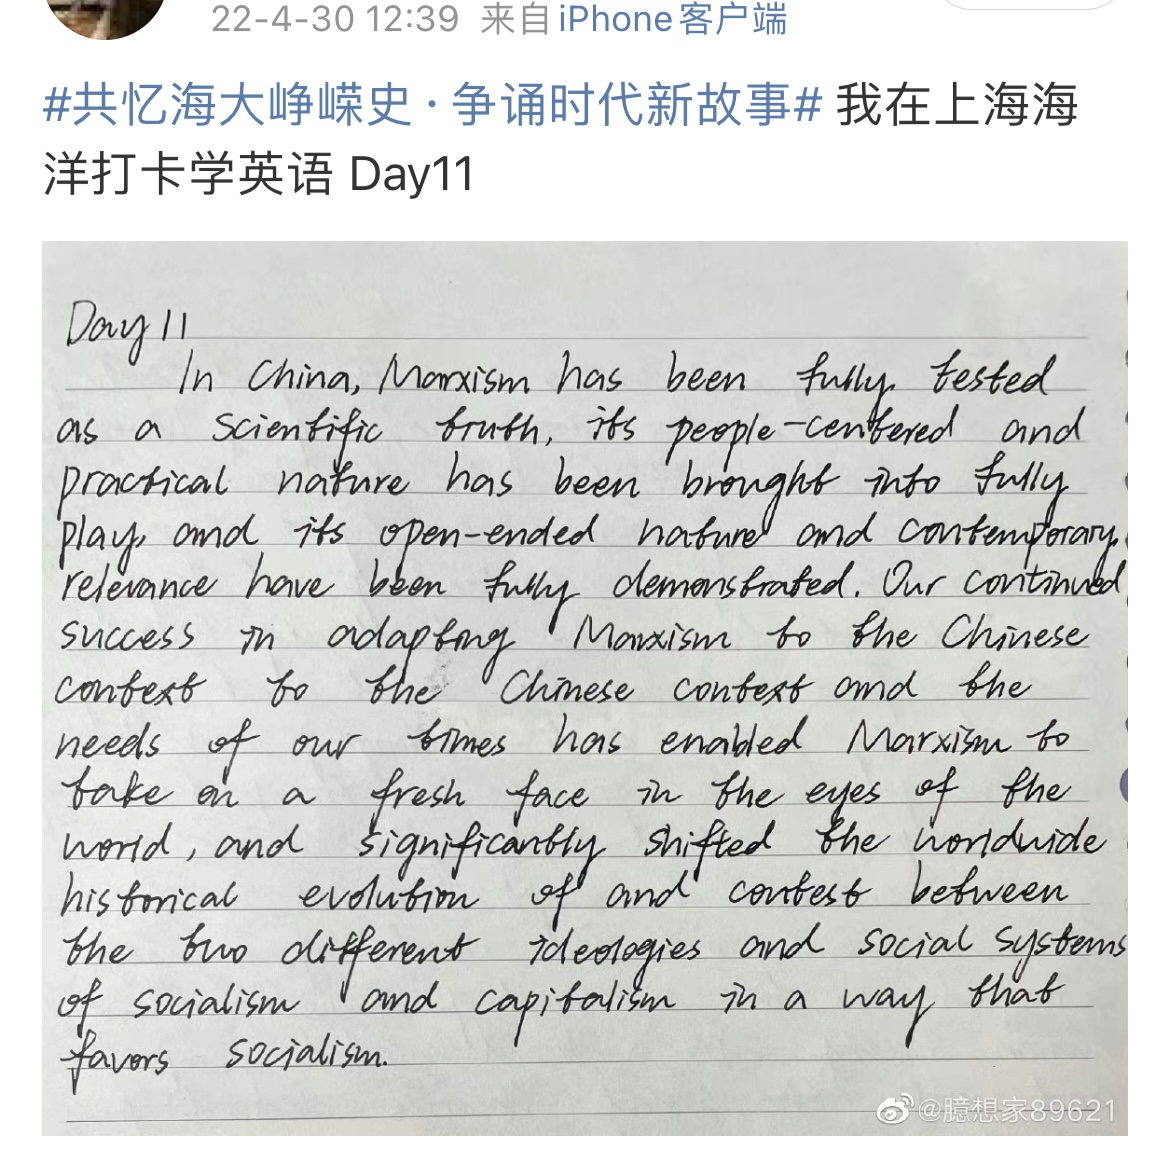 22-4-30 12:39 来自 iPhone客户端
#共忆海大峥嵘史·争诵时代新故事# 我在上海海
洋打卡学英语 Day11
Day 11
In China, Marxism has been fully tested
as a scientific truth, its people-centered and
practical nature has been brought into fully
play, and its open-ended nature and contemporary
relevance have been fully demonstrated. Our continued
success in adapting Marxism to the Chinese
context to the Chinese context and the
needs of our times has enabled Marxism to
take on a fresh face in the eyes of the
world, and significantly shifted the worldwide
historical evolution of and contest between
the two different ideologies and social systems
of socialism and capitalism in a way that
favors socialism.
@臆想家89621